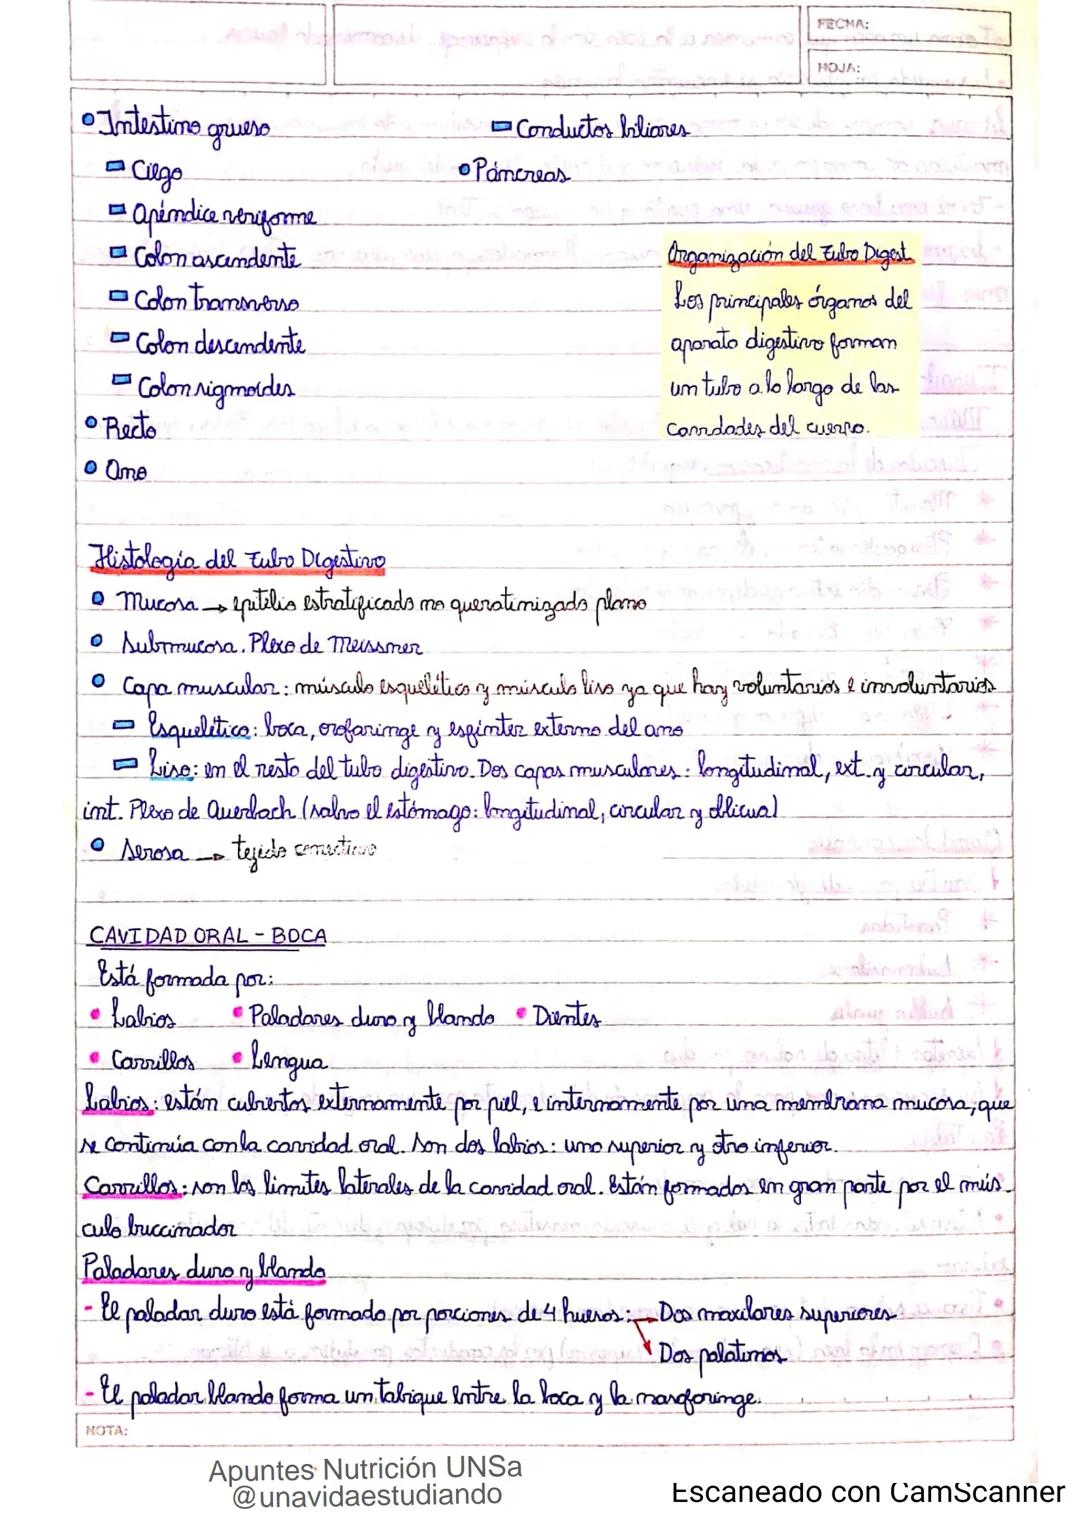 FECHA:
HOJA:
Intestino grueso
Ciego
Apéndice veriforme
Colon ascendente
Colon transverso
Colon descendente
Colon sigmoides
Recto
Ano
Conductos biliares
Páncreas
Organización del Tubo Digest
Los principales órganos del
aparato digestivo forman
un tubo a lo largo de las
cavidades del cuerpo.
Histología del Tubo Digestivo
Mucosa → epitelio estratificado no queratinizado plano
Submucosa. Plexo de Meissner
Capa muscular: músculo esquelético y músculo liso ya que hay voluntarios e involuntarios
Esquelético: boca, orofaringe y esfínter externo del ano
Liso: en el resto del tubo digestivo. Dos capas musculares: longitudinal, ext. y circular,
int. Plexo de Auerbach (salvo el estómago: longitudinal, circular y oblicua)
Serosa → tejido conectivo
CAVIDAD ORAL - BOCA
Está formada por:
• Labios • Paladares duro y blando • Dientes
• Carrillos • Lengua
Labios: están cubiertos externamente por piel, e internamente por una membrana mucosa, que
se continúa con la cavidad oral. Son dos labios: uno superior y otro inferior.
Carrillos: son los límites laterales de la cavidad oral. Están formados en gran parte por el mús-
culo buccinador
Paladares duro y blando
- El paladar duro está formado por porciones de 4 huesos: → Dos maxilares superiores
Dos palatinos
- El paladar blando forma un tabique entre la boca y la nasofaringe.
NOTA:
Apuntes Nutrición UNSa
@unavidaestudiando
Escaneado con CamScanner